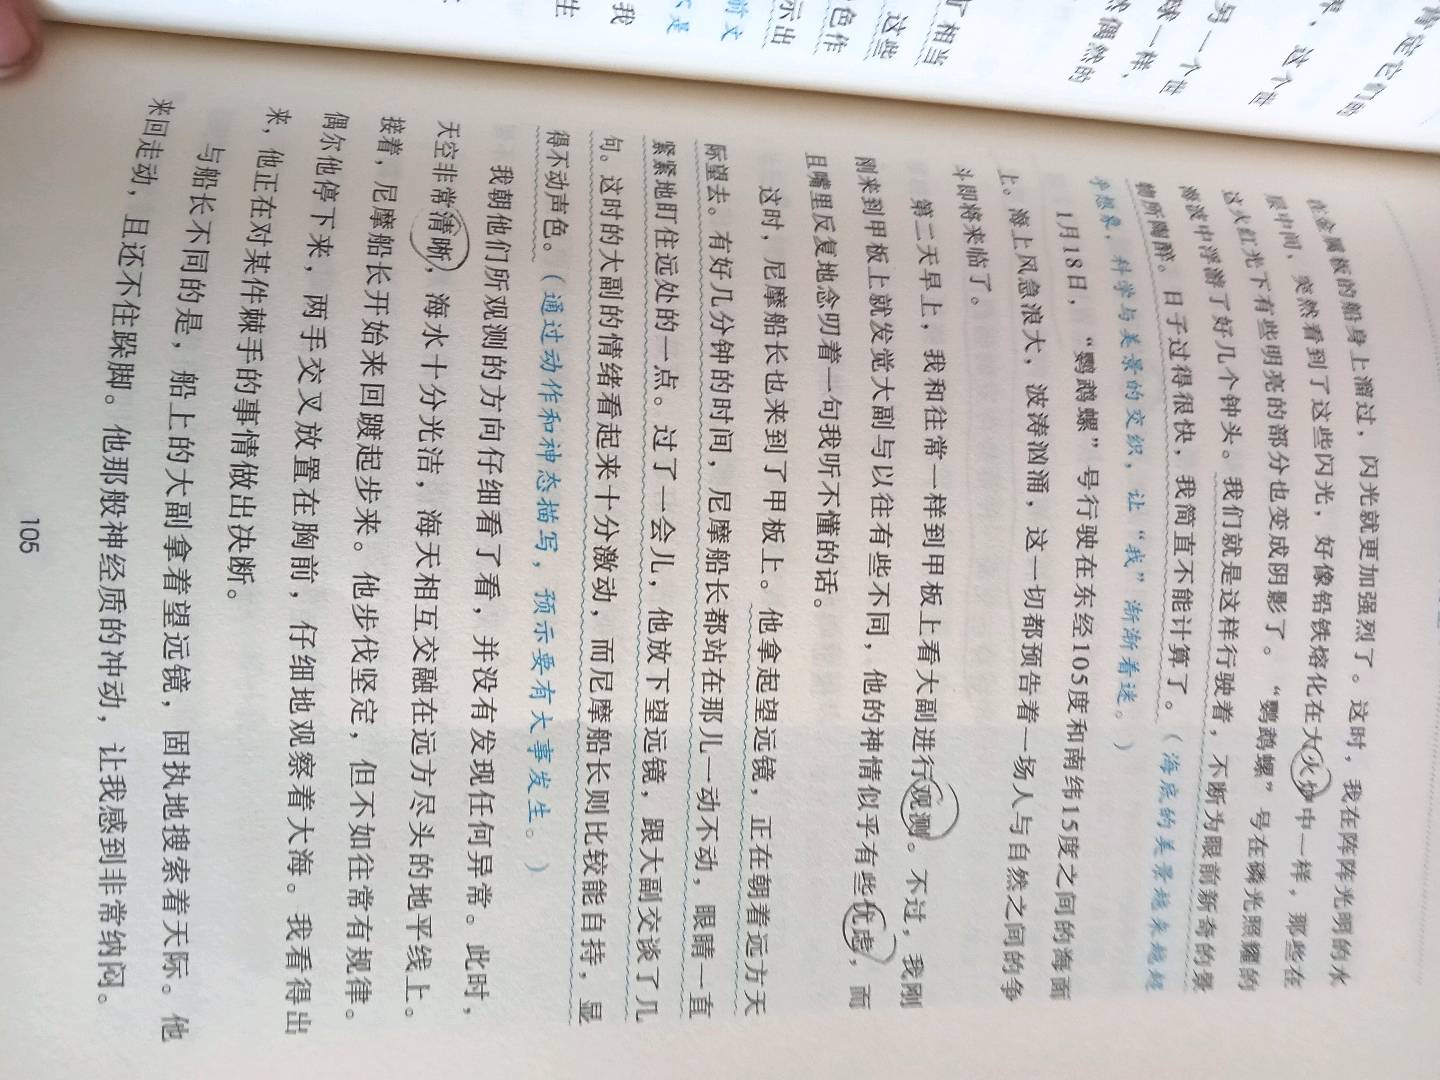 在金属板的船身上溜过，闪光就更加强烈了。这时，我在阵阵光明的水
层中间，突然看到了这些闪光，好像铅铁熔化在大火炉中一样，那些在
这火红光下有些明亮的部分也变成阴影了。“鹦鹉螺”号在磷光照耀的
海波中浮游了好几个钟头。我们就是这样行驶着，不断为眼前新奇的景
物所陶醉。日子过得很快，我简直不能计算了。（海底的美景越来越超
乎想象，科学与美景的交织，让“我”渐渐着迷。）
1月18日，“鹦鹉螺”号行驶在东经105度和南纬15度之间的海面
上。海上风急浪大，波涛汹涌，这一切都预告着一场人与自然之间的争
斗即将来临了。
第二天早上，我和往常一样到甲板上看大副进行观测。不过，我刚
刚来到甲板上就发觉大副与以往有些不同，他的神情似乎有些忧虑，而
且嘴里反复地念叨着一句我听不懂的话。
这时，尼摩船长也来到了甲板上。他拿起望远镜，正在朝着远方天
际望去。有好几分钟的时间，尼摩船长都站在那儿一动不动，眼睛一直
紧紧地盯住远处的一点。过了一会儿，他放下望远镜，跟大副交谈了几
句。这时的大副的情绪看起来十分激动，而尼摩船长则比较能自持，显
得不动声色。（通过动作和神态描写，预示要有大事发生。）
我朝他们所观测的方向仔细看了看，并没有发现任何异常。此时，
天空非常清晰，海水十分光洁，海天相互交融在远方尽头的地平线上。
接着，尼摩船长开始来回踱起步来。他步伐坚定，但不如往常有规律。
偶尔他停下来，两手交叉放置在胸前，仔细地观察着大海。我看得出
来，他正在对某件棘手的事情做出决断。
与船长不同的是，船上的大副拿着望远镜，固执地搜索着天际。他
来回走动，且还不住跺脚。他那般神经质的冲动，让我感到非常纳闷。
105